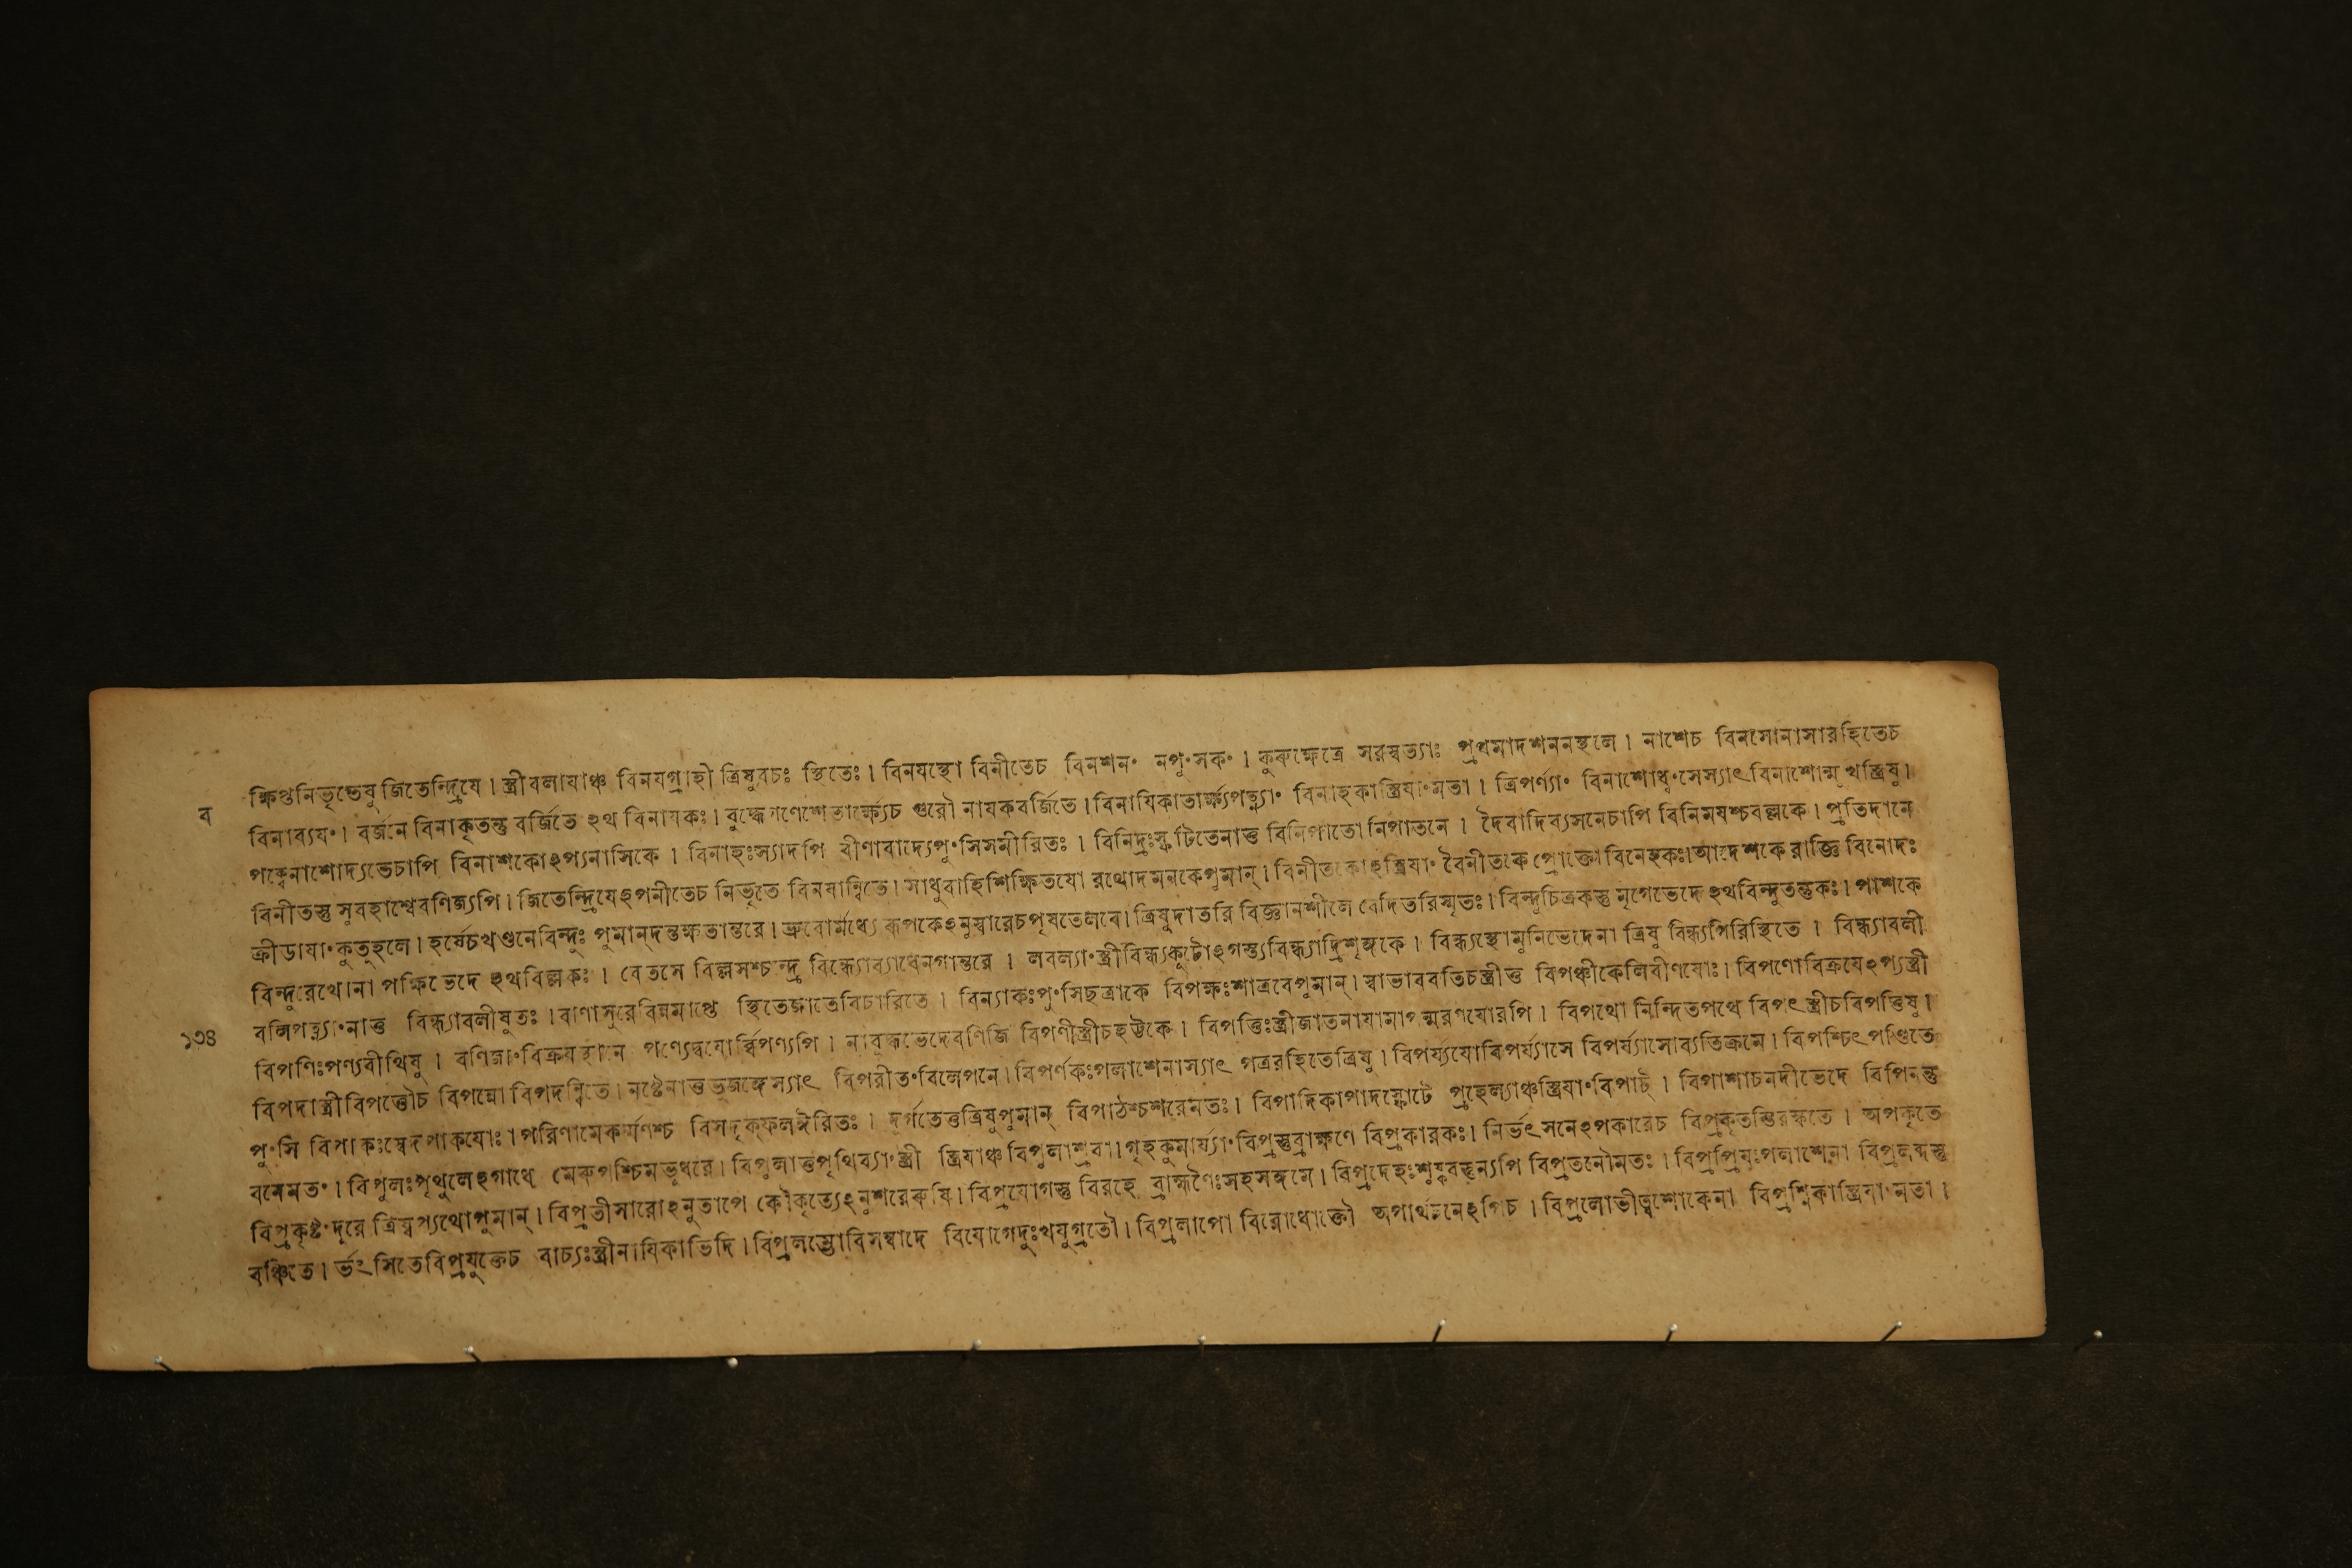 ক্ষিপ্তনিভৃতেষু জিতেন্দ্রিযে। স্ত্রীবলাযাঞ্চ বিনযগ্রাহী ত্রিষুবচঃ স্থিতেঃ। বিনযস্থো বিনীতেচ বিনশনং নপুংসকং। কুরুক্ষেত্রে সরস্বত্যাঃ প্রথমাদর্শনস্থলে। নাশেচ বিনসোনাসারহিতেচ
ব
বিনাব্যযং। বর্জনে বিনাকৃতন্তু বর্জিতে ঽথ বিনাযকঃ। বুদ্ধেগণেশেতার্ক্ষ্যেচ গুরৌ নাযকবর্জিতে। বিনাযিকাতার্ক্ষ্যপত্ন্যাং বিনাহকাস্ত্রিযাংমতা। ত্রিপর্ণ্যাং বিনাশোধ্বংসেস্যাৎবিনাশোন্মুখস্ত্রিষু।
পক্বেনাশোদ্যতেচাপি বিনাশকোঽপ্যনাসিকে। বিনাহঃস্যাদপি বীণাবাদ্যেপুংসিসমীরিতঃ। বিনিদ্রঃস্ফুটিতেনাত্ত বিনিপাতোনিপাতনে। দৈবাদিব্যসনেচাপি বিনিমযশ্চবল্লকে। প্রতিদানে
বিনীতস্তু সুবহাশ্বেবণিজ্যপি। জিতেন্দ্রিযেঽপনীতেচ নিভৃতে বিনযান্বিতে। সাধুবাহিশিক্ষিতযো রথোদমনকেপুমান্। বিনীতকোঽস্ত্রিযাং বৈনীতকে প্রোক্তোবিনেহকঃ।আদেশকে রাজ্ঞি বিনোদঃ
ক্রীডাযাংকুতুহলে। হর্ষেচখণ্ডনেবিন্দুঃ পুমান্দন্তক্ষতান্তরে। ভ্রুবোর্মধ্যে রূপকেঽনুস্বারেচপৃষতেলবে। ত্রিষুদাতরি বিজ্ঞানশীলে বেদিতরিস্মৃতঃ। বিন্দুচিত্রকস্তু মৃগেভেদে ঽথবিন্দুতন্তুকঃ। পাশকে
বিন্দুরেথোনা পক্ষিভেদে ঽথবিল্লকঃ। বেতসে বিল্লসশ্চন্দ্র বিন্ধ্যোব্যাধেনগান্তরে। লবল্যাংস্ত্রীবিন্ধ্যকুটোঽগস্ত্যবিন্ধ্যাদ্রিশৃঙ্গকে। বিন্ধ্যস্থোমুনিভেদেনা ত্রিষু বিন্ধ্যগিরিস্থিতে। বিন্ধ্যাবলী
বলিপত্ন্যাংনাত্ত বিন্ধ্যাবলীষুতঃ। বাণাসুরেবিন্নমাপ্তে স্থিতেজ্ঞাতেবিচারিতে। বিন্যাকঃপুংসিছত্রাকে বিপক্ষঃশাত্রবেপুমান্। স্বাভাববতিচস্ত্রীত্ত বিপঞ্চীকেলিবীণযোঃ। বিপণোবিক্রযেঽপ্যস্ত্রী
১৩৪
বিপণিঃপণ্যবীথিষু। বণিজাংবিক্রযস্থানে পণ্যেদ্বযোর্ব্বিপণ্যপি। নাবৃক্ষভেদেবণিজি বিপণীস্ত্রীচহট্টকে। বিপত্তিঃস্ত্রীজাতনাযামাপন্মরণযোরপি। বিপথো নিন্দিতপথে বিপৎস্ত্রীচবিপত্তিষু।
বিপদাস্ত্রীবিপত্তৌচ বিপন্নো বিপদন্বিতে। নষ্টেনাত্তভুজঙ্গেস্যাৎ বিপরীতংবিলেপনে। বিপর্ণকঃপলাশেনাস্যাৎ পত্ররহিতেত্রিষু। বিপর্য্যযোবিপর্য্যাসে বিপর্য্যাসোব্যতিক্রমে। বিপশ্চিৎপণ্ডিতে
পুংসি বিপাকঃস্বেদপাকযোঃ। পরিণামেকর্ম্মণশ্চ বিসদৃক্ফলঈরিতঃ। দুর্গতেত্তত্রিষুপুমান্ বিপাঠশ্চশরেমতঃ। বিপাদিকাপাদস্ফোটে প্রহেল্যাঞ্চস্ত্রিযাংবিপাট্। বিপাশাচনদীভেদে বিপিনন্তু
বনেমতং। বিপুলঃপৃথুলেঽগাধে মেরুপশ্চিমভূধরে। বিপুলাত্তপৃথিব্যাংস্ত্রী স্ত্রিযাঞ্চবিপুলাশ্রবা। গৃহকুমার্য্যাংবিপ্রস্তুব্রাক্ষণে বিপ্রকারকঃ। নির্ভৎসনেঽপকারেচ বিপ্রকৃতস্তিরস্কৃতে। অপকৃতে
বিপ্রকৃষ্টংদূরে ত্রিষ্বপ্যথোপুমান্। বিপ্রতীসারোঽনুতাপে কৌকৃত্যেঽনুশরেরুষি। বিপ্রযোগস্তু বিরহে ব্রাহ্মণৈঃসহসঙ্গমে। বিপ্রদেহঃশুষ্কবত্ত্বন্যপি বিপ্রতনৌমতঃ। বিপ্রপ্রিযঃপলাশেনা বিপ্রলব্ধস্তু
বঞ্চিতে। র্ভৎসিতেবিপ্রযুক্তেচ বাচ্যঃস্ত্রীনাযিকাভিদি। বিপ্রলম্ভোবিসম্বাদে বিযোগেদুঃখযুগ্রতৌ। বিপ্রলাপো বিরোধোক্তৌ অপার্থবচনেঽপিচ। বিপ্রলোভীত্বশোকেনা বিপ্রশ্নিকাস্ত্রিযাংমতা।